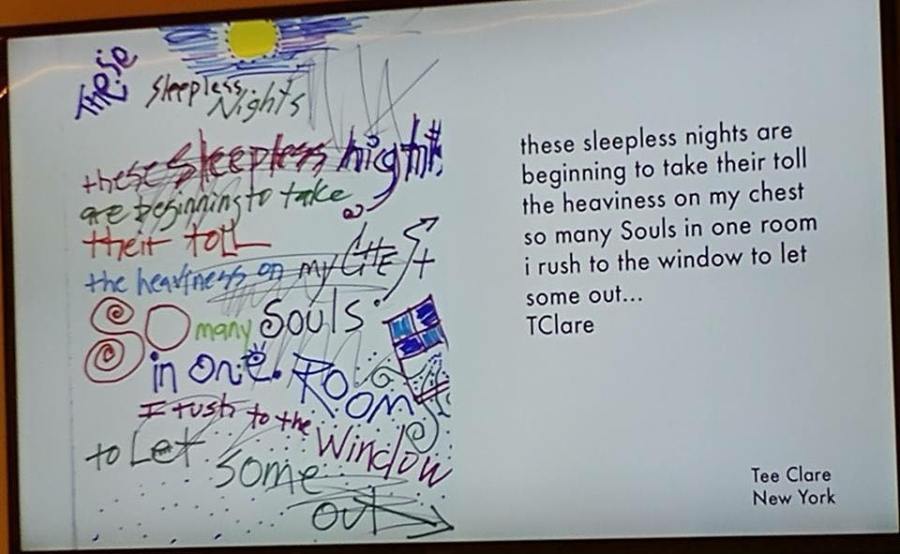 These
Sleepless
Nights
these sleepless nights
are beginning to take
their toll
the heaviness on my CHEST
SO many Souls
in one Room
I rush to the Window
to Let
some
out
these sleepless nights are
beginning to take their toll
the heaviness on my chest
so many Souls in one room
i rush to the window to let
some out...
TClare
Tee Clare
New York